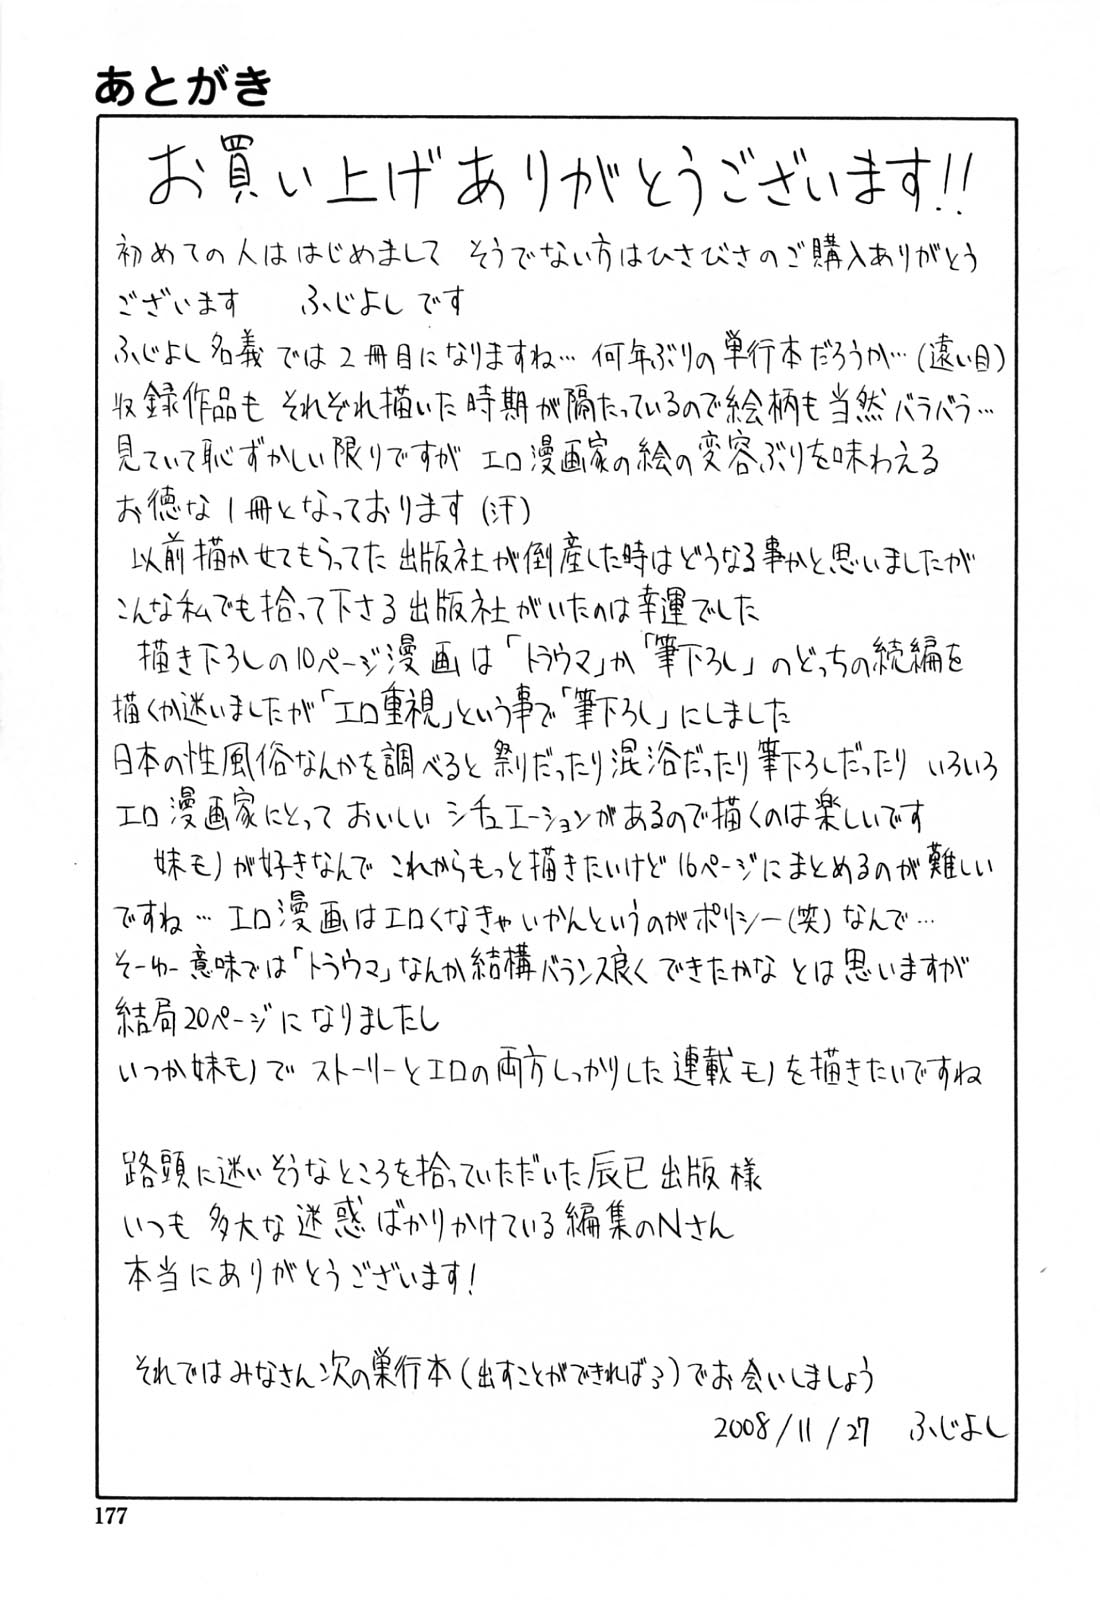 あとがき
お買い上げありがとうございます!!
初めての人ははじめまして そうでない方はひさびさのご購入ありがとう
ございます ふじよしです
ふじよし名義では2冊目になりますね… 何年ぶりの単行本だろうか…(遠い目)
収録作品も それぞれ描いた時期が隔たっているので絵柄も当然バラバラ…
見ていて恥ずかしい限りですが エロ漫画家の絵の変容ぶりを味わえる
お徳な1冊となっております(汗)
以前描かせてもらってた出版社が倒産した時はどうなる事かと思いましたが
こんな私でも拾って下さる出版社がいたのは幸運でした
描き下ろしの10ページ漫画は「トラウマ」か「筆下ろし」のどっちの続編を
描くか迷いましたが「エロ重視」という事で「筆下ろし」にしました
日本の性風俗なんかを調べると祭りだったり混浴だったり筆下ろしだったり いろいろ
エロ漫画家にとって おいしい シチュエーションがあるので描くのは楽しいです
妹モノが好きなんで これからもっと描きたいけど16ページにまとめるのが難しい
ですね… エロ漫画はエロくなきゃいかんというのがポリシー(笑)なんで…
そーゆー意味では「トラウマ」なんか結構バランス良くできたかな とは思いますが
結局20ページになりましたし
いつか妹モノで ストーリーとエロの両方しっかりした連載モノを描きたいですね
路頭に迷いそうなところを拾っていただいた辰巳出版様
いつも多大な迷惑ばかりかけている編集のNさん
本当にありがとうございます!
それではみなさん次の単行本(出すことができればぅ)でお会いしましょう
2008/11/27 ふじよし
177